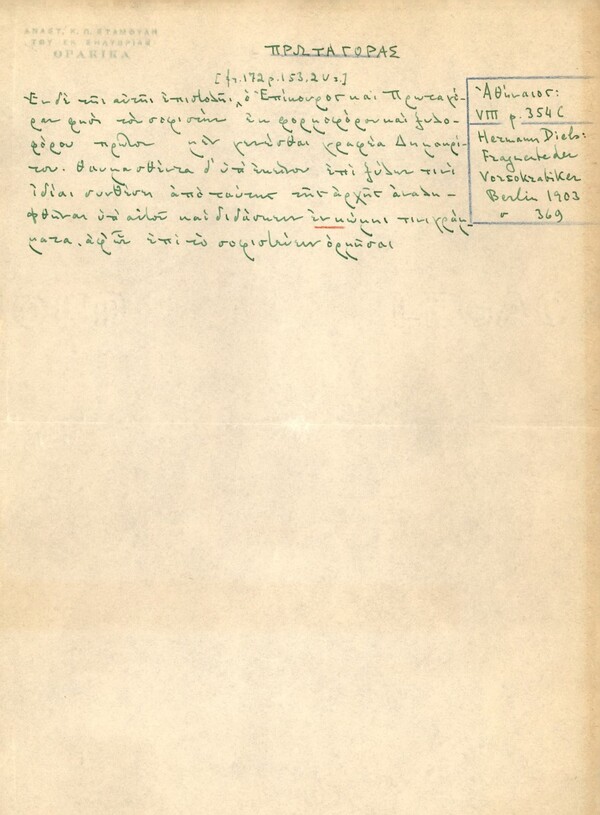 ΑΝΑΣΤ. Κ. Π. ΣΤΑΜΟΥΛΗ
ΤΟΥ ΕΚ ΣΗΛΥΒΡΙΑΣ
ΘΡΑΚΙΚΑ
ΠΡΩΤΑΓΟΡΑΣ
[fr. 172 p. 153, 2 Us.]
Ἐν δὲ τῆι αὐτῆι ἐπιστολῆι ὁ Ἐπίκουρος καὶ Πρωταγό-
ραν φησὶ τὸν σοφιστὴν ἐκ φορμοφόρου καὶ ξυλο-
φόρου πρῶτον μὲν γενέσθαι γραφέα Δημοκρί-
του. θαυμασθέντα δ' ὑπ' ἐκείνου ἐπὶ ξύλων τινὶ
ἰδίαι συνθέσει ἀπὸ ταύτης τῆς ἀρχῆς ἀναλη-
φθῆναι ὑπ' αὐτοῦ καὶ διδάσκειν ἐν κώμηι τινὶ γράμ-
ματα, ἀφ' ὧν ἐπὶ τὸ σοφιστεύειν ὁρμῆσαι
Ἀθήναιος:
VIII p. 354 C
Hermann Diels:
Fragmente der
Vorsokratiker
Berlin 1903
σ 369